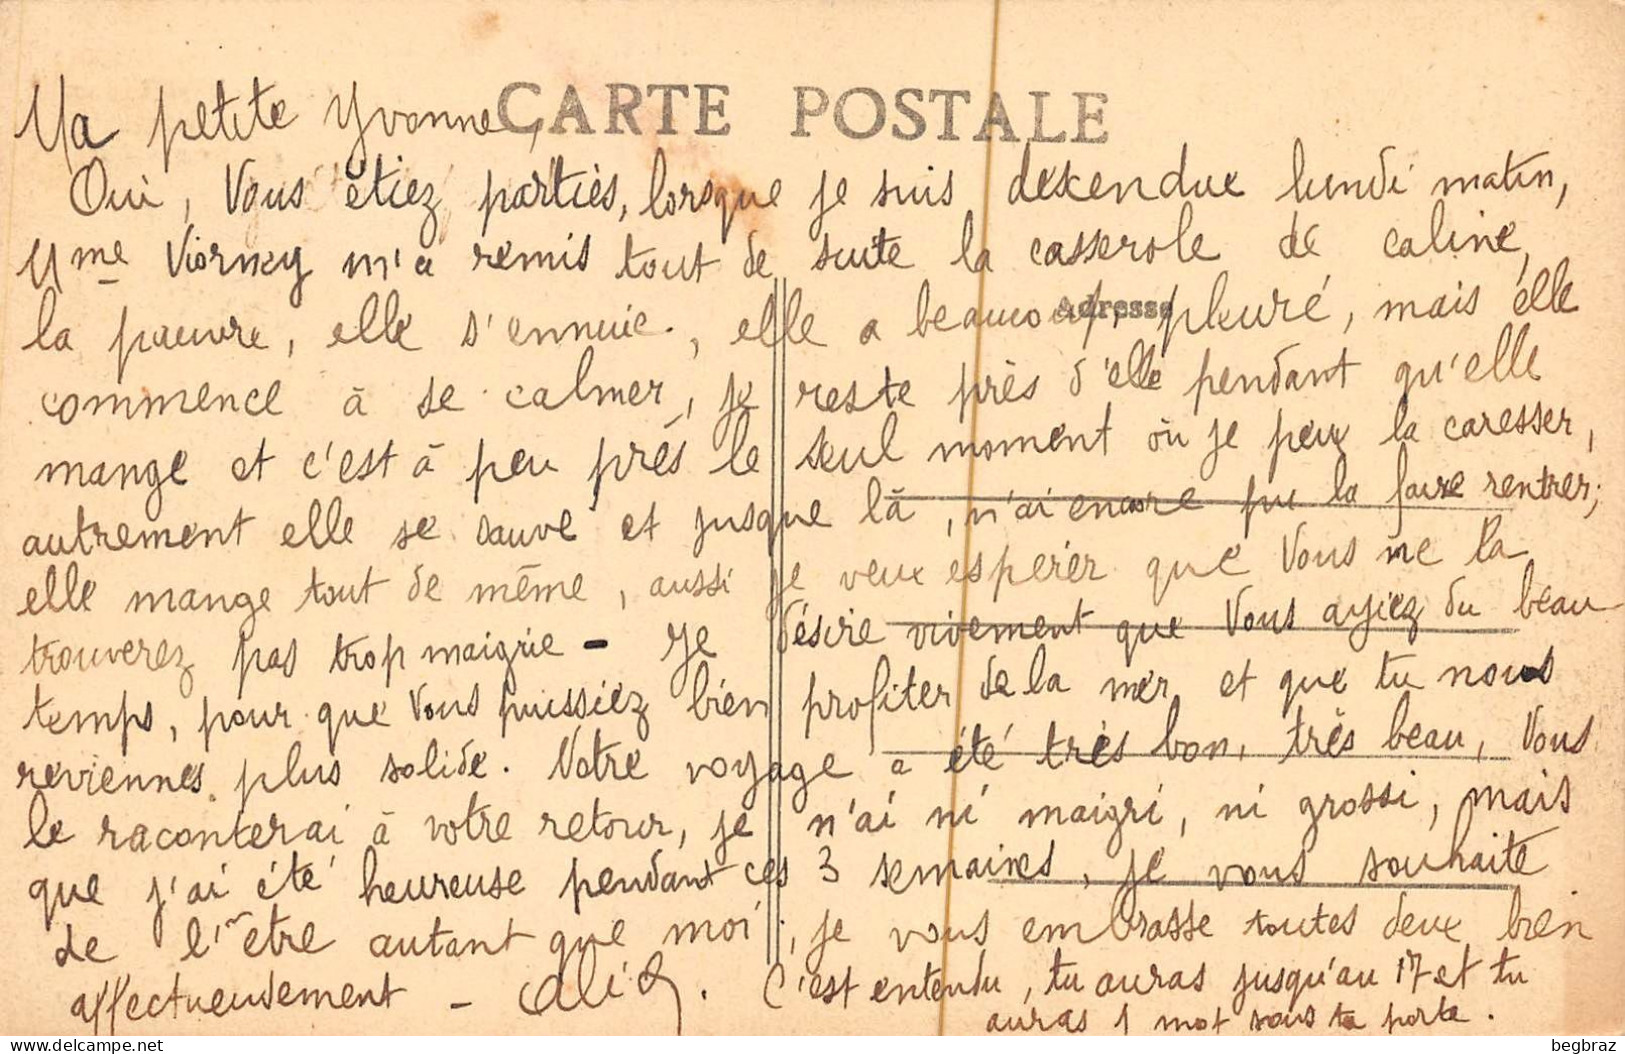 CARTE POSTALE
Ma petite Yvonne,
Oui, Vous étiez parties, lorsque je suis descendue lundi matin,
Mme Viorney m'a remis tout de suite la casserole de caline,
Adresse
la pauvre, elle s'ennuie, elle a beaucoup pleuré, mais elle
commence à se calmer, je reste près d'elle pendant qu'elle
mange et c'est à peu près le seul moment où je peux la caresser,
autrement elle se sauve et jusque là, n'ai encore pu la faire rentrer;
elle mange tout de même, aussi je veux espérer que Vous ne la
trouverez pas trop maigrie - Je désire vivement que Vous ayiez du beau
temps, pour que Vous puissiez bien profiter de la mer et que tu nous
reviennes plus solide. Votre voyage a été très bon, très beau, Vous
le raconterai à votre retour, je n'ai ni maigri, ni grossi, mais
que j'ai été heureuse pendant ces 3 semaines, je vous souhaite
de l'être autant que moi, je vous embrasse toutes deux bien
affectueusement - C'est entendu, tu auras jusqu'au 17 et tu
auras 1 mot sous ta porte.
begbraz